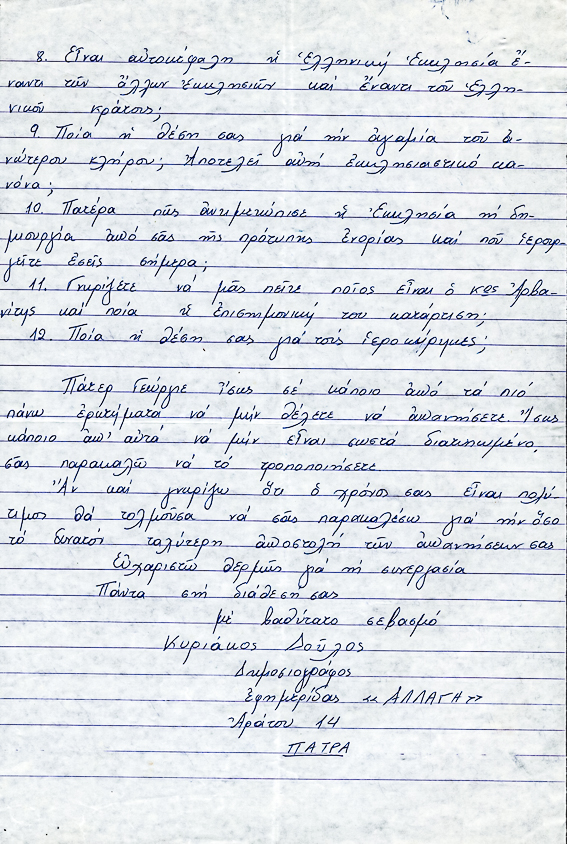 8. Εἶναι αὐτοκέφαλη ἡ Ἑλληνική Ἐκκλησία ἔ-
ναντι τῶν ἄλλων Ἐκκλησιῶν καί ἔναντι τοῦ Ἑλλη-
νικοῦ κράτους;
9. Ποία ἡ θέση σας γιά τήν ἀγαμία τοῦ ἀ-
νώτερου κλήρου; Ἀποτελεῖ αὐτή ἐκκλησιαστικό κα-
νόνα;
10. Πατέρα πῶς ἀντιμετώπισε ἡ Ἐκκλησία τή δη-
μιουργία ἀπό σᾶς τῆς πρότυπης ἐνορίας καί ποῦ ἱερουρ-
γεῖτε ἐσεῖς σήμερα;
11. Γνωρίζετε νά μᾶς πεῖτε ποῖος εἶναι ὁ κος Ἀρβα-
νίτης καί ποία ἡ ἐπιστημονική του κατάρτιση;
12. Ποία ἡ θέση σας γιά τούς ἱεροκήρυκες;
Πάτερ Γεώργιε ἴσως σέ κάποιο ἀπό τά πιό
πάνω ἐρωτήματα νά μήν θέλετε νά ἀπαντήσετε. Ἴσως
κάποιο ἀπ' αὐτά νά μήν εἶναι σωστά διατυπωμένο,
σᾶς παρακαλῶ νά τό τροποποιήσετε.
Ἄν καί γνωρίζω ὅτι ὁ χρόνος σας εἶναι πολύ-
τιμος θά τολμοῦσα νά σᾶς παρακαλέσω γιά τήν ὅσο
τό δυνατόν ταχύτερη ἀποστολή τῶν ἀπαντήσεων σας
Εὐχαριστῶ θερμῶς γιά τή συνεργασία
Πάντα στή διάθεσή σας
μέ βαθύτατο σεβασμό
Κυριάκος Δοῦλος
Δημοσιογράφος
Ἐφημερίδας «ΑΛΛΑΓΗ»
Ἀράτου 14
ΠΑΤΡΑ